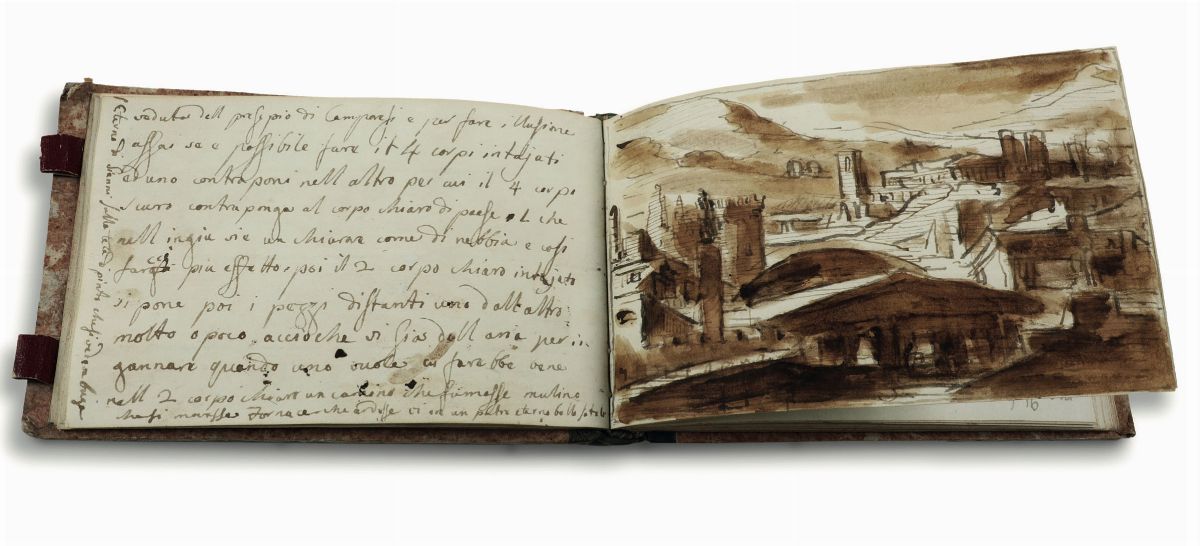 veduta dell presepio di Camporesi e per fare illusione
assai se e possibile fare i t 4 corpi intajati
ed uno contraponi nell altro per cui il 4 corpo
scuro contraponga al corpo chiaro di paese. L che
nell ingiu sie un chiarore come di nebbia e cosi
fara piu effetto, poi il 2 corpo chiaro intajato
si pone poi i pezzi distanti uno dall altro
molto o poco, accioche vi sia dell aria per in
gannare quando uno vuole ci farebbe bene
nell 2 corpo chiaro un camino che fumasse mulino
che si movesse Fornace che ardesse